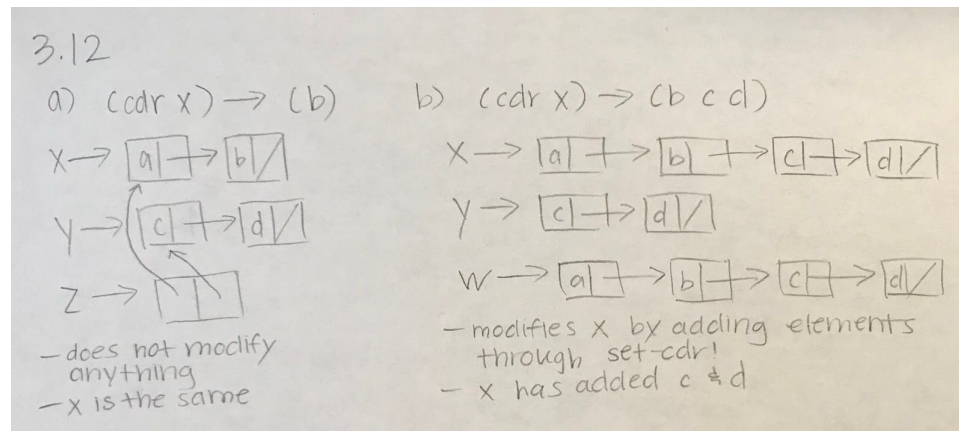 3.12
a) (cdr x) → (b)
x → a → b
y → c → d
z →
- does not modify
anything
- x is the same
b) (cdr x) → (b c d)
x → a → b → c → d
y → c → d
w → a → b → c → d
- modifies x by adding elements
through set-cdr!
- x has added c & d